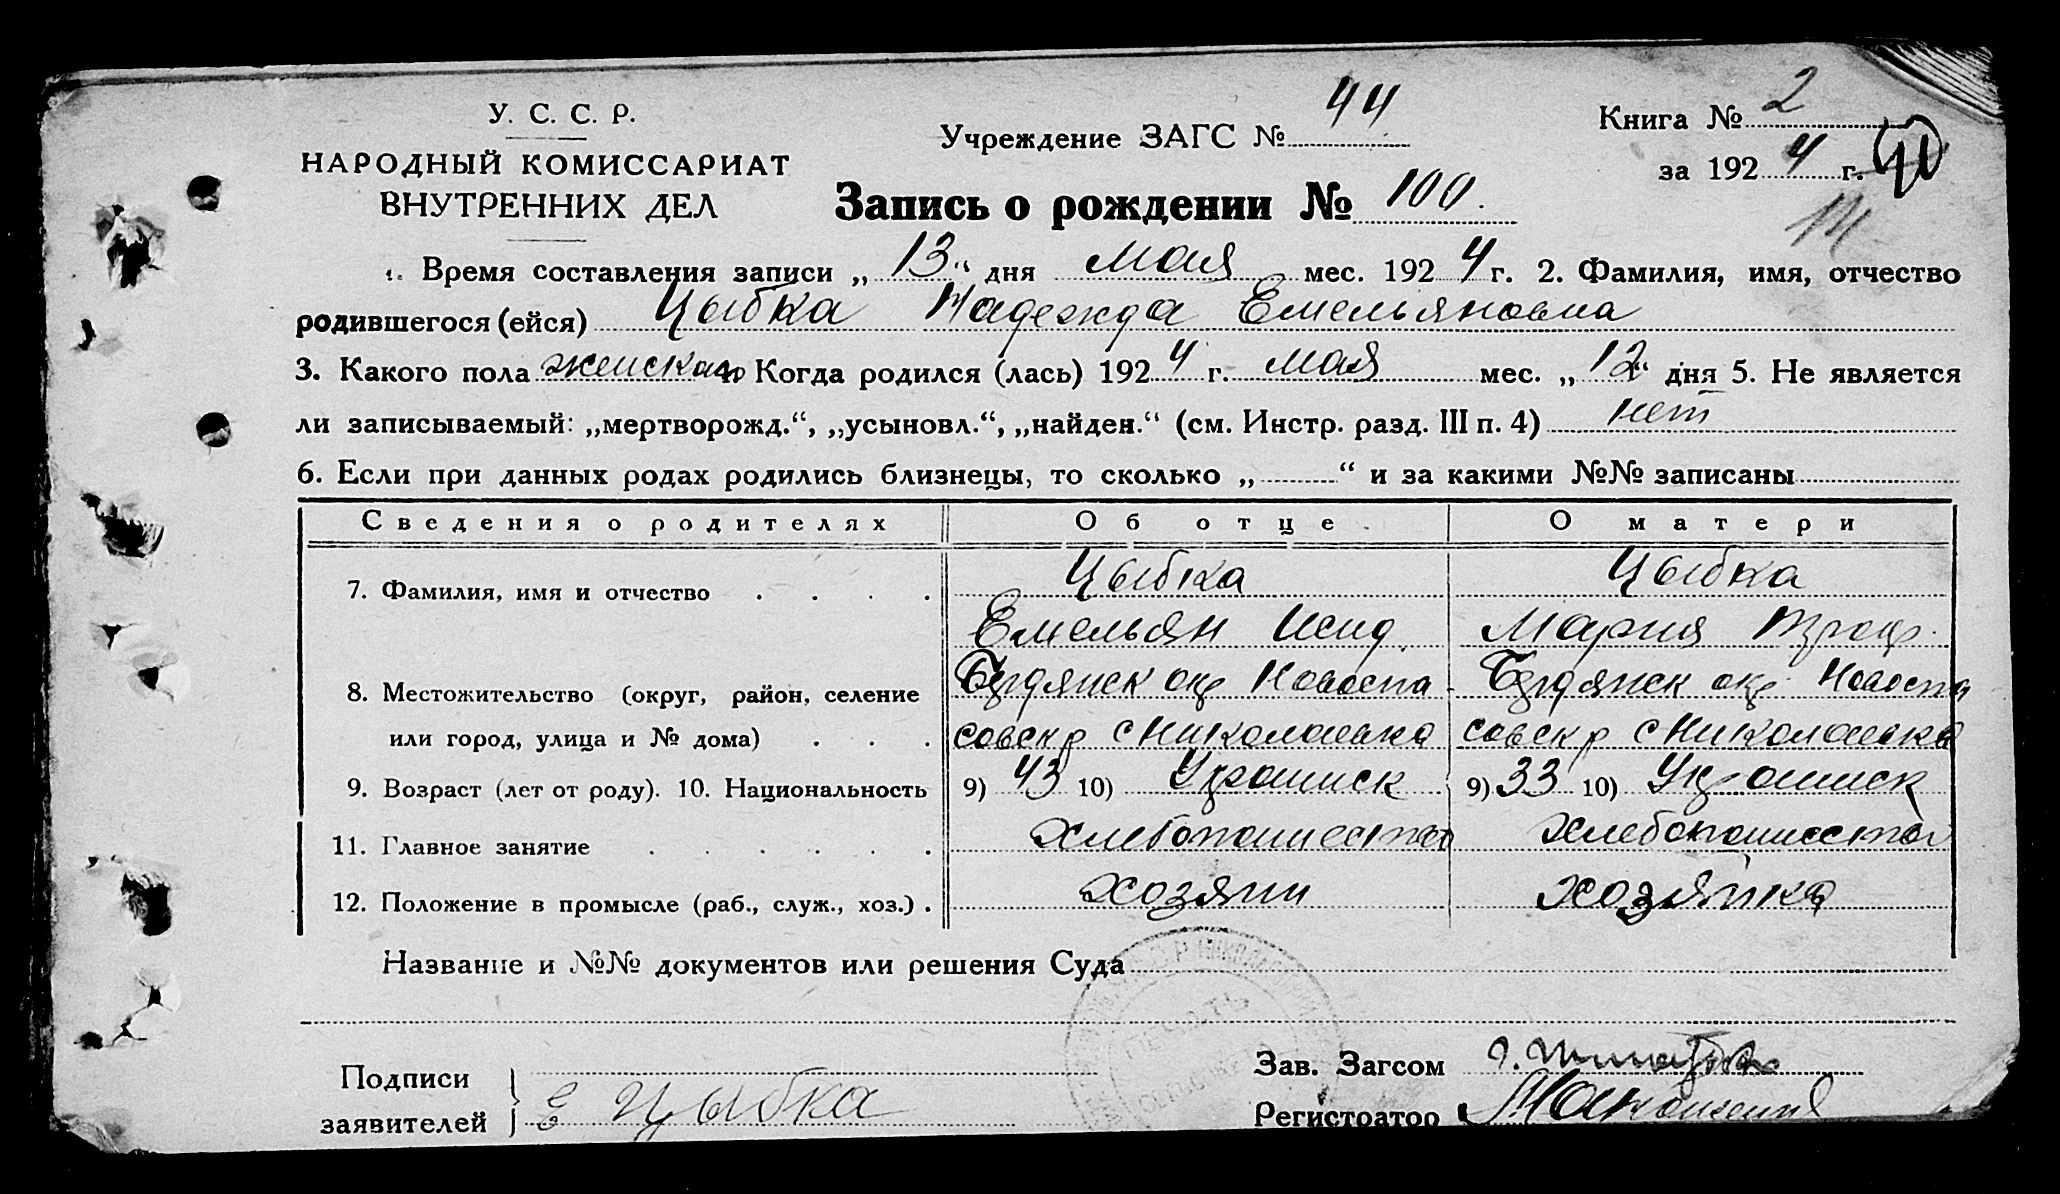 У. С. С. Р.
НАРОДНЫЙ КОМИССАРИАТ
ВНУТРЕННИХ ДЕЛ
Учреждение ЗАГС № 44
Книга № 2
за 1924 г.
Запись о рождении № 100.
1. Время составления записи „13“ дня мая мес. 1924 г. 2. Фамилия, имя, отчество
родившегося (ейся) Цыбка Надежда Емельяновна
3. Какого пола женская 4. Когда родился (лась) 1924 г. мая мес. „12“ дня 5. Не является
ли записываемый: „мертворожд.“, „усыновл.“, „найден.“ (см. Инстр. разд. III п. 4) нет
6. Если при данных родах родились близнецы, то сколько „ “ и за какими №№ записаны
Сведения о родителях Об отце О матери
7. Фамилия, имя и отчество Цыбка Цыбка
Емельян Исид Мария
8. Местожительство (округ, район, селение Бердянск окр Новоспа Бердянск окр Новоспа
или город, улица и № дома) совск р с Николаевка совск р с Николаевка
9. Возраст (лет от роду). 10. Национальность 9) 43 10) Украинск 9) 33 10) Украинск
11. Главное занятие Хлебопашество Хлебопашество
12. Положение в промысле (раб., служ., хоз.) хозяин хозяйка
Название и №№ документов или решения Суда
Подписи
заявителей Е Цыбка
Зав. Загсом
Регистратор